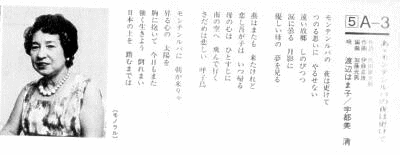 5A-3
あゝモンテンルパの夜は更けて
作詞 代田銀太郎
作曲 伊藤正康
編曲 加藤光男
唄 渡辺はま子/宇都美 清
モンテンルパの 夜は更けて
つのる思いに やるせない
遠い故郷 しのびつつ
涙に曇る 月影に
優しい母の 夢を見る
燕はまたも 来たけれど
恋し吾が子は いつ帰る
母の心は ひとすじに
南の空へ 飛んで行く
さだめは悲しい 呼子鳥
モンテンルパに 朝が来りゃ
昇る心の 太陽を
胸に抱いて 今日もまた
強く生きよう 倒れまい
日本の土を 踏むまでは
(モノラル)